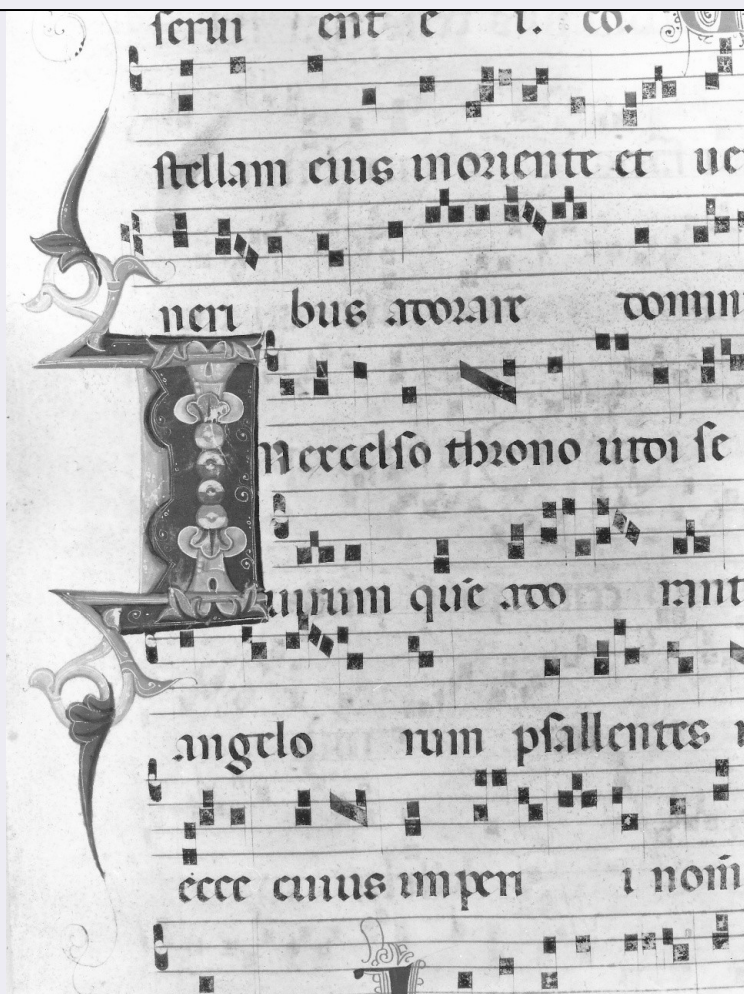 serui ent e i. co.
stellam eius in oriente et ue
neri bus adorare domin
IN excelso throno uidi se
uirum quē ado rant
angelo rum psallentes
ecce cuius imperi i nom̄